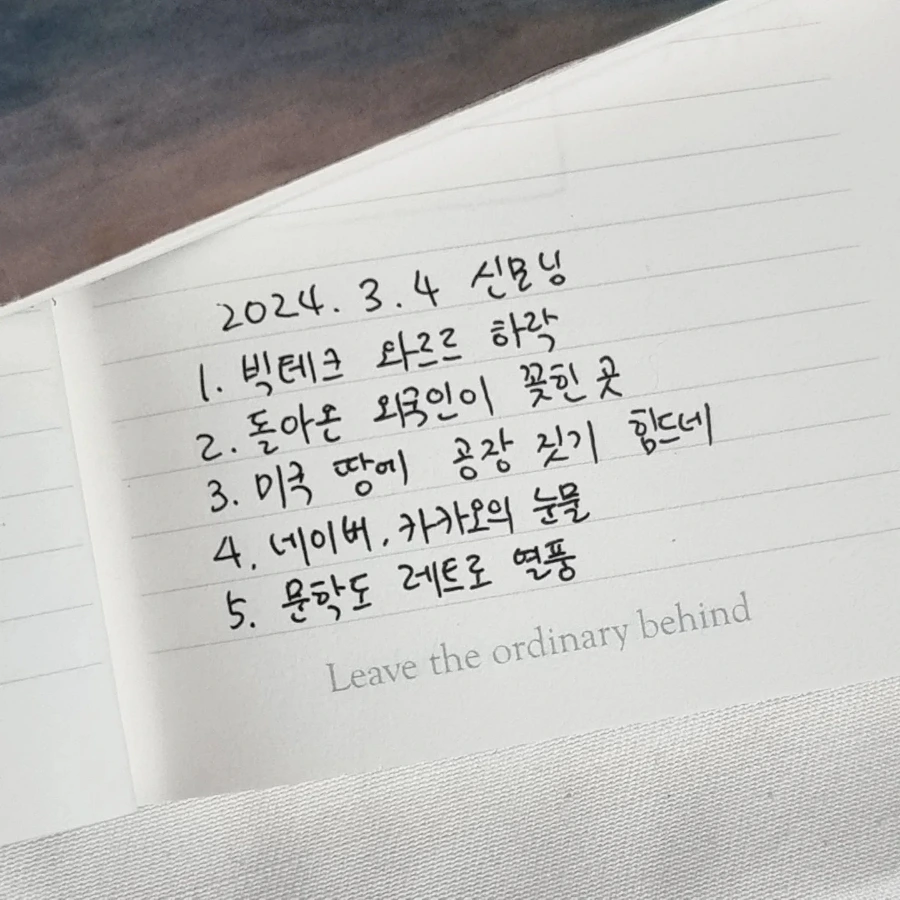 2024. 3. 4 신모닝
1. 빅테크 와르르 하락
2. 돌아온 외국인이 꽂힌 곳
3. 미국 땅에 공장 짓기 힘드네
4. 네이버, 카카오의 눈물
5. 문학도 레트로 열풍
Leave the ordinary behind